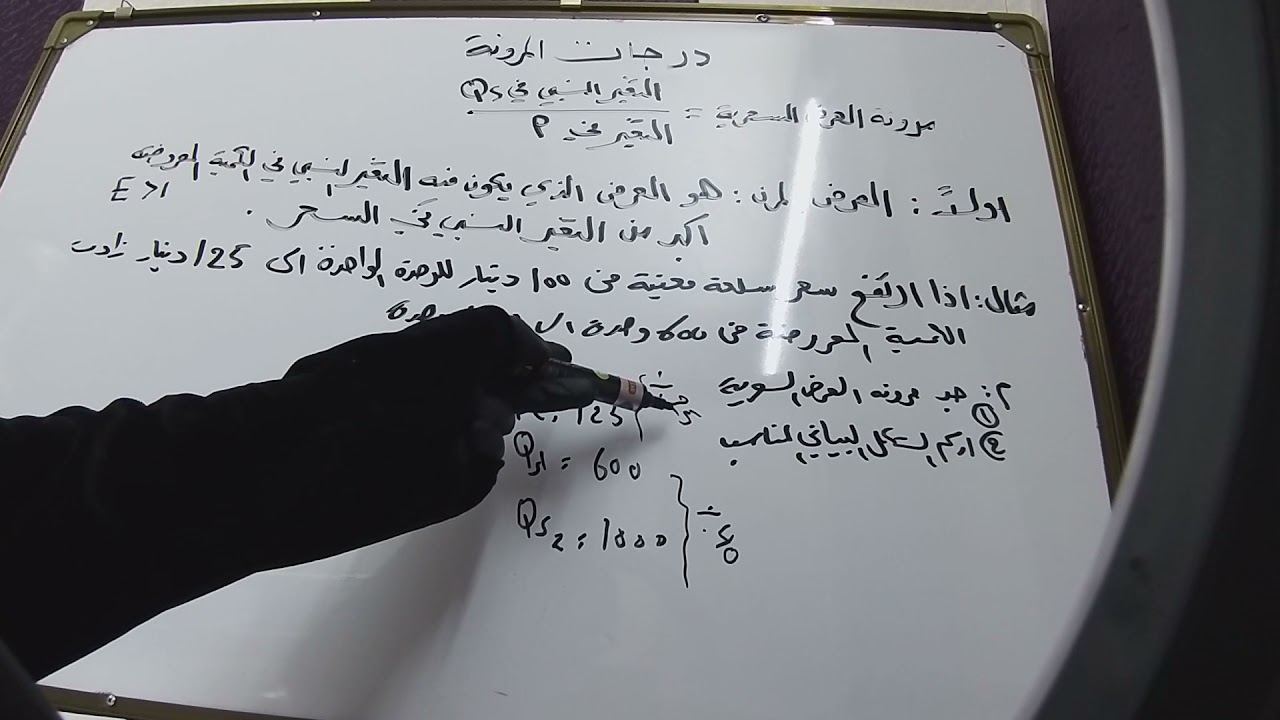 درجات المرونة
مرونة العرض السعرية = التغير النسبي في Qs / التغير في P
اولاً : العرض المرن : هو العرض الذي يكون فيه التغير النسبي في الكمية المعروضة
اكبر من التغير النسبي في السعر . E>1
مثال : اذا ارتفع سعر سلعة معينة من 100 دينار للوحدة الواحدة الى 125 دينار زادت
الكمية المعروضة من 600 وحدة الى وحدة
م : جد مرونة العرض السعرية
①
② ارسم الشكل البياني المناسب
125
Qs1 = 600
Qs2 = 1000
÷
÷